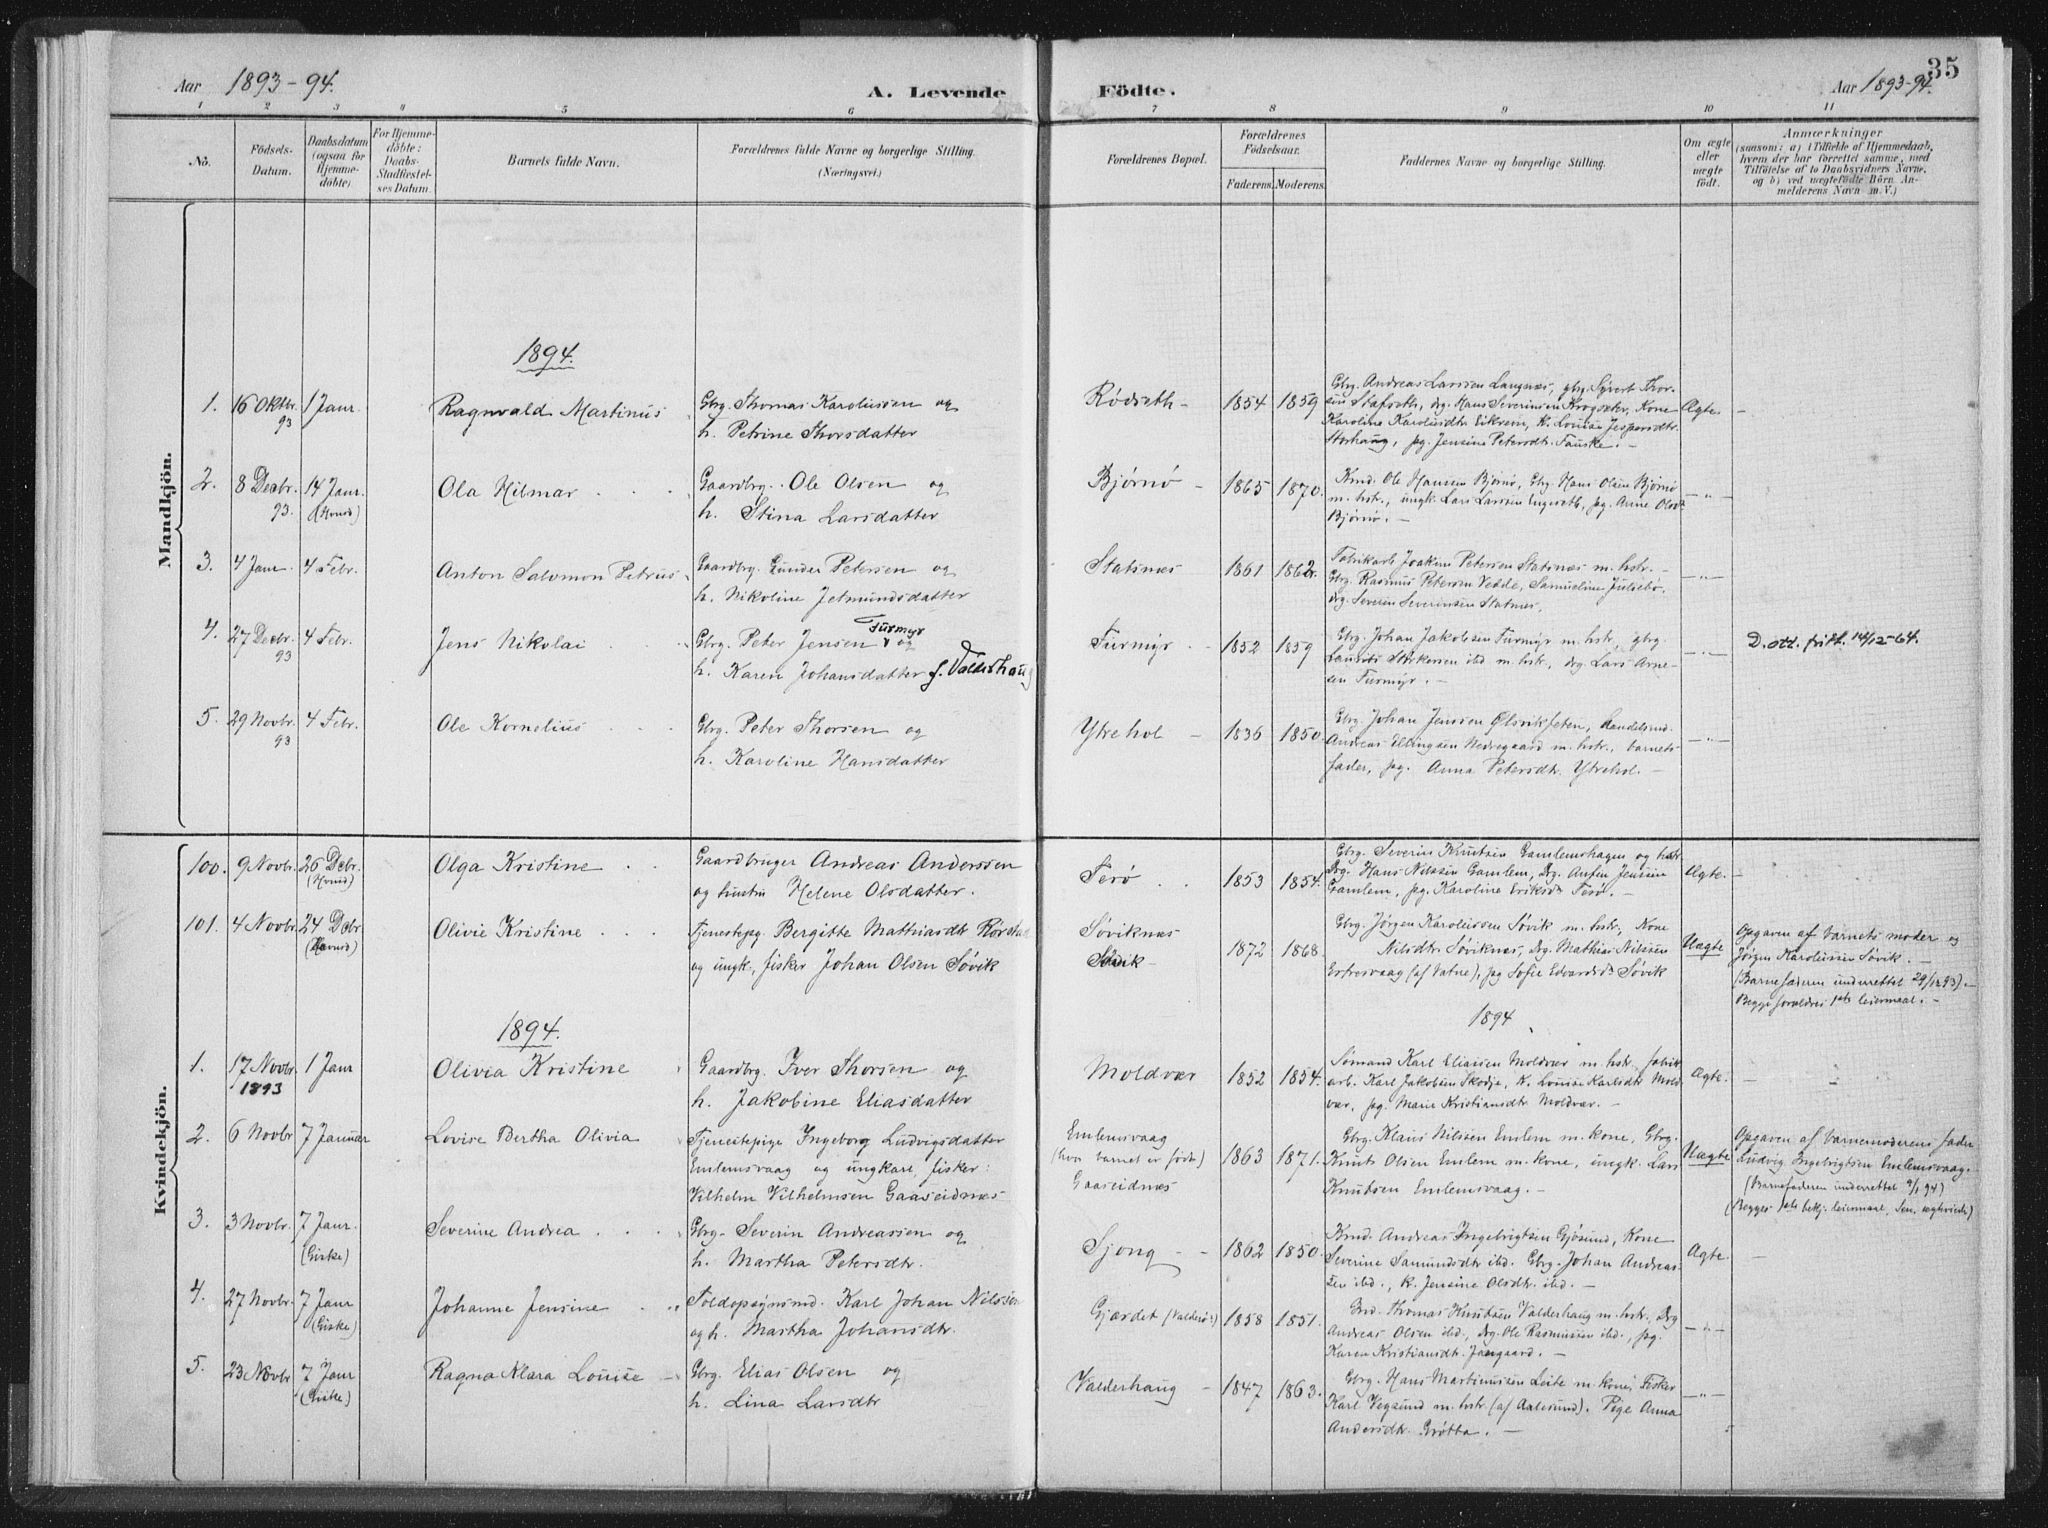 35
Aar 1893-94.
A. Levende Födte.
Aar 1893-94.
1 2 3 4 5 6 7 8 9 10 11
No.
Födsels-
Datum.
Daabsdatum
(ogsaa for
Hjemme-
döbte)
For Hjemme-
döbte:
Daabs-
Stadfæstel-
ses Datum.
Barnets fulde Navn.
Forældrenes fulde Navne og borgerlige Stilling.
(Næringsvei.)
Forældrenes Bopæl.
Forældrenes
Födselsaar.
Faderens. Moderens.
Faddernes Navne og borgerlige Stilling.
Om ægte
eller
uægte
födt.
Anmærkninger
(saasom: a) i Tilfælde af Hjemmedaab,
hvem der har forrettet samme, med
Tilföielse af to Daabsvidners Navne.
og b) ved uægtefödte Börn An-
melderens Navn m. V.)
Mandkjön.
1894.
1. 16 Oktbr. 93 1 Janr. Ragnvald Martinus
Gbrg. Thomas Karolussen og
h. Petrine Thorsdatter
Rødseth - 1854 1859
Gbrg. Andreas Larssen Langnes, gbrg. Sivert Thor-
sen Stafseth, drg. Hans Severinsen Krogsæter, Kone
Karoline Karolusdtr. Eikrem, K. Louise Jespersdtr.
Storhaug, pg. Jensine Petersdtr. Fauske. -
Ægte. -
2. 8 Decbr. 93. 14 Janr. (Hovid) Ola Hilmar
Gaardbrg. Ole Olsen og
h. Stina Larsdatter
Bjørnø - 1865 1870.
Kmd. Ole Hansen Bjørnø, Gbrg. Hans Olsen Bjørnø
m. hstr., ungk. Lars Larssen Engeseth, pg. Anne Olsdtr
Bjørnø. -
- " -
3. 4 Janr. 4 Febr. Anton Salomon Petrus
Gaardbrg. Gunder Petersen og
h. Nikoline Jetmundsdatter
Statsnes - 1861 1862.
Fabrikarb. Joakim Petersen Statsnes m. hstr. -
Gbrg. Rasmus Petersen Vedde, Samueline Julsebø,
drg. Severin Severinsen Statnes.
- " -
4. 27 Decbr. 93 4 Febr. Jens Nikolai
Gbrg. Peter Jensen Furmyr og
h. Karen Johansdatter f. Valderhaug
Furmyr - 1852 1859
Gbrg. Johan Jakobsen Furmyr m. hstr, gbrg.
Laurits ibd m. hstr., drg. Lars Arne-
sen Furmyr. -
- " -
D. att. fritt. 14/12-64.
5. 29 Novbr. 93 4 Febr. Ole Kornelius
Gbrg. Peter Thorsen og
h. Karoline Hansdatter
Ytrehol - 1836 1850.
Gbrg. Johan Jenssen Ølsvikfeten, Handelsmd.
Andreas Ellingsen Nedregaard m. hstr., barnets
fader, pg. Anna Petersdtr. Ytrehol. -
- " -
Kvindekjön.
100. 9 Novbr. 26 Decbr. (Hovid) Olga Kristine
Gaardbruger Andreas Anderssen
og hustru Helene Olsdatter.
Terø 1853 1854.
Gbrg. Severin Knutsen Gamlemshagen og hstr
Drg. Hans Nilssen Gamlem, Drg. Anfin Jensen
Gamlem, pg. Karoline Eriksdtr Terø. -
Ægte. -
101. 4 Novbr. 24 Decbr. (Hovid) Olivie Kristine
Tjenestepg. Bergitte Mathiasdtr
og ungk., fisker Johan Olsen Søvik
Søviknes
Søvik - 1872 1868.
Gbrg. Jørgen Karolussen Søvik m. hstr., Kone
Nilsdtr. Søviknes, Drg. Mathias Nilssen
Eertesvaag (af Vatne), pg Sofie Edvardsdtr Søvik
Uægte
Opgaven af barnets moder og
Jörgen Karolussen Søvik. -
(Barnefaderen underrettet 29/12 93). -
Begge forældres 1ste leiermaal. -
1894.
1894
1. 17 Novbr. 1893 1 Janr Olivia Kristine
Gaardbrg. Iver Thorsen og
h. Jakobine Eliasdatter
Moldvær 1852 1854.
Sømand Karl Eliassen Moldvær m. hstr. fabrik-
arb. Karl Jakobsen Skodje, K. Louise Karlsdtr. Mold-
vær, pg. Marie Kristiansdtr. Moldvær. -
Ægte. -
2. 6 Novbr 7 Januar Lovise Bertha Olivia
Tjenestepige Ingeborg Ludvigsdatter
Emlemsvaag og ungkarl, fisker:
Vilhelm Vilhelmsen Gaaseidnæs
Emlemsvaag
(hvor barnet er født)
Gaaseidnæs
1863 1871.
Gbrg. Klaus Nilssen Emlem m. kone, Gbrg.
Knut Olsen Emlem m. kone, ungk. Lars
Knutsen Emlemsvaag. -
Uægte
Opgaven af barnemoderens fader
Ludvig Ingebrigtsen Emlemsvaag. -
(Barnefaderen underrettet 9/1 94)
(Begges 1ste bekj. leiermaal,
3. 3 Novbr. 7 Janr. (Giske) Severine Andrea
Gbrg. Severin Andreassen og
h. Martha Petersdtr.
Sjong - 1862 1850.
Kmd. Andreas Ingebrigtsen Gjøsund, Kone
Severine Samundsdtr ibd. Gbrg. Johan Andreas-
sen ibd., K. Jensine Olsdtr. ibd. -
Ægte. -
4. 27 Novbr. 7 Janr (Giske) Johanne Jensine
Toldopsynsmd. Karl Johan Nilssen
og h. Martha Johansdtr.
Gjærdet (Valderø) 1858 1851.
Gmd. Thomas Knutsen Valderhaug m. hstr., Drg
Andreas Olsen ibd., drg. Ole Rasmussen ibd., pg.
Karen Kristiansdtr. Jangaard. -
- " -
5. 23 Novbr 7 Janr (Giske) Ragna Klara Louise -
Gbrg. Elias Olsen og
h. Lina Larsdtr
Valderhaug - 1847 1863.
Gbrg. Hans Martinussen Leite m. kone, Fisker
Karl Vegsund m. hstr. (af Aalesund). Pige Anna
Andersdtr. Grøtta. -
- " -